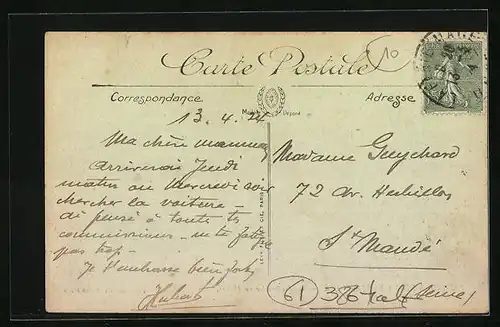 10
Carte Postale
Correspondance
Adresse
13.4.24
Ma chère maman
arriverai Jeudi
matin ou Mercredi soir
chercher la voiture -
ai pensé à toutes tes
commissions - ne te fatigue
pas trop -
Je t'embrasse bien fort
Hubert
Madame Guychard
72 Av. Herbillon
St Mandé
(Seine)
61